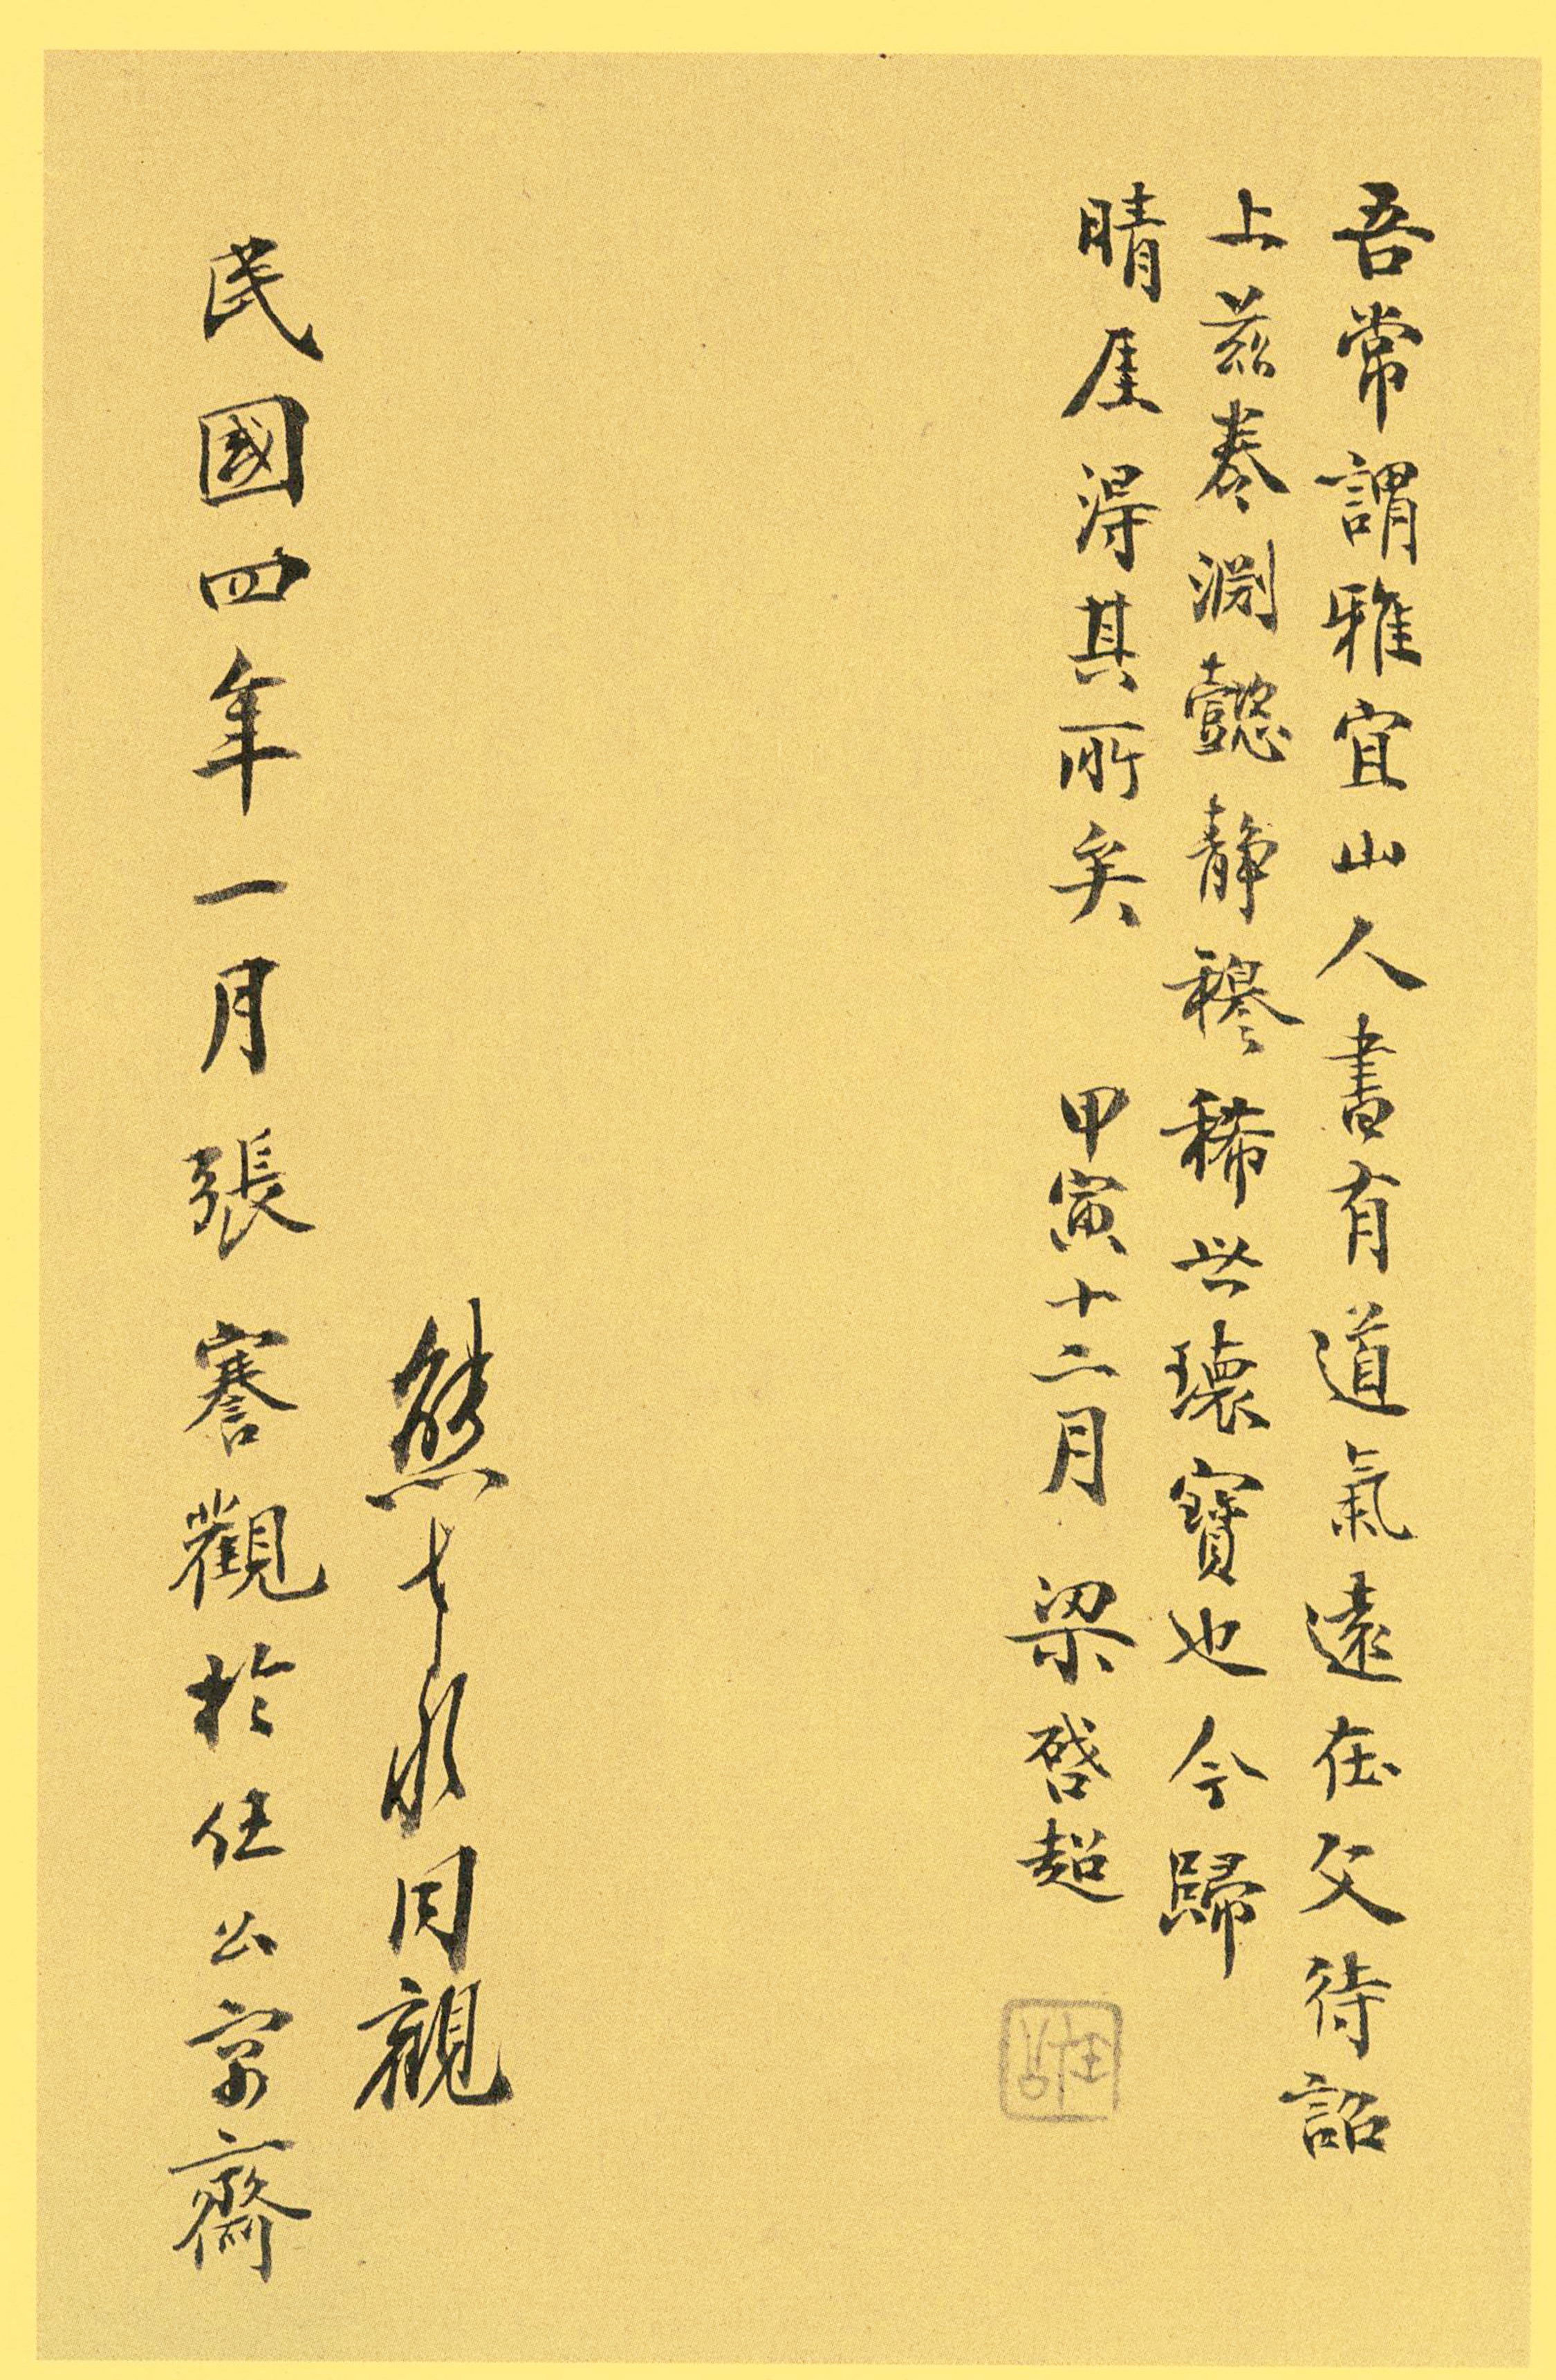 吾常謂雅宜山人書有道氣遠在父待詔
上茲卷淵懿靜穆稀世瓌寶也今歸
晴厓得其所矣 甲寅十二月 梁啓超
熊希齡同觀
民國四年一月張謇觀於任公寓齋